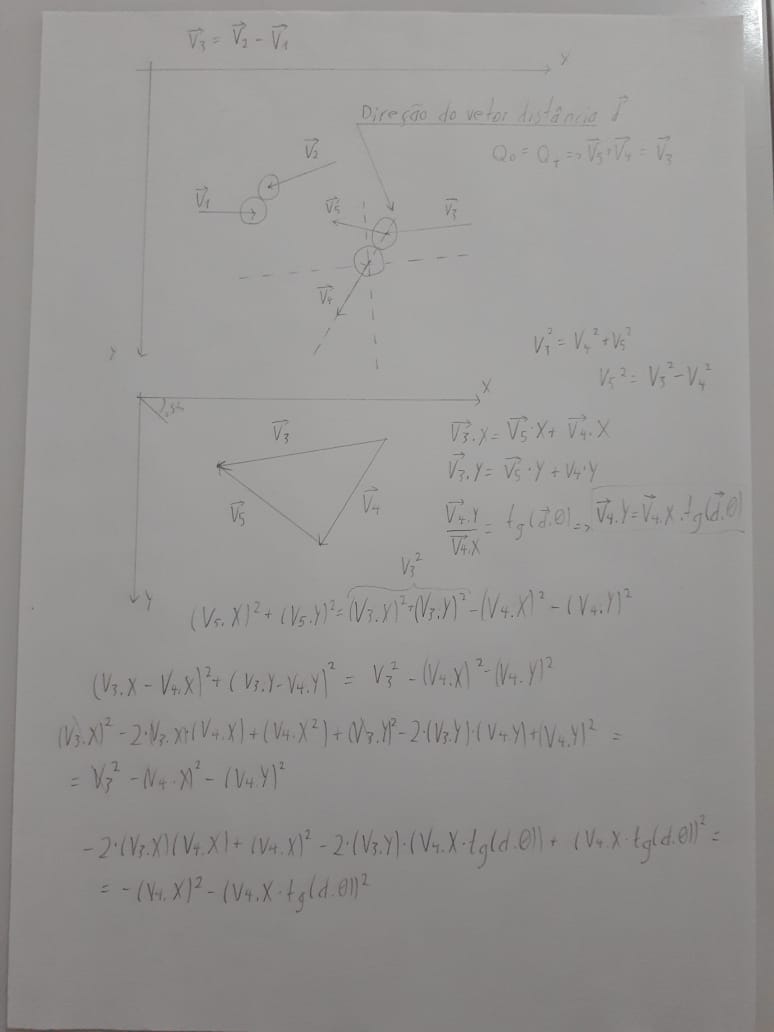 V⃗3 = V⃗2 - V⃗1
X
Direção do vetor distância d⃗
V⃗2
Q0 = QI => V⃗5 + V⃗4 = V⃗3
V⃗1
V⃗5
V⃗3
V⃗4
Y
V3² = V4² + V5²
V5² = V3² - V4²
X
V⃗3
V⃗3.X = V⃗5.X + V⃗4.X
V⃗3.Y = V⃗5.Y + V4.Y
V⃗5
V⃗4
V⃗4.Y / V⃗4.X = tg(d⃗.θ) => V⃗4.Y = V⃗4.X.tg(d⃗.θ)
V3²
Y
(V5.X)² + (V5.Y)² = (V3.X)² + (V3.Y)² - (V4.X)² - (V4.Y)²
(V3.X - V4.X)² + (V3.Y - V4.Y)² = V3² - (V4.X)² - (V4.Y)²
(V3.X)² - 2.V3.X.(V4.X) + (V4.X²) + (V3.Y)² - 2.(V3.Y).(V4.Y) + (V4.Y)² =
= V3² - (V4.X)² - (V4.Y)²
-2.(V3.X)(V4.X) + (V4.X)² - 2.(V3.Y).(V4.X.tg(d.θ)) + (V4.X.tg(d.θ))² =
= -(V4.X)² - (V4.X.tg(d.θ))²